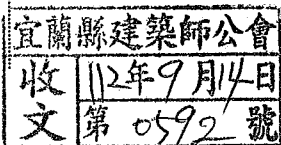 宜蘭縣建築師公會
收文
112年9月14日
第 0592 號